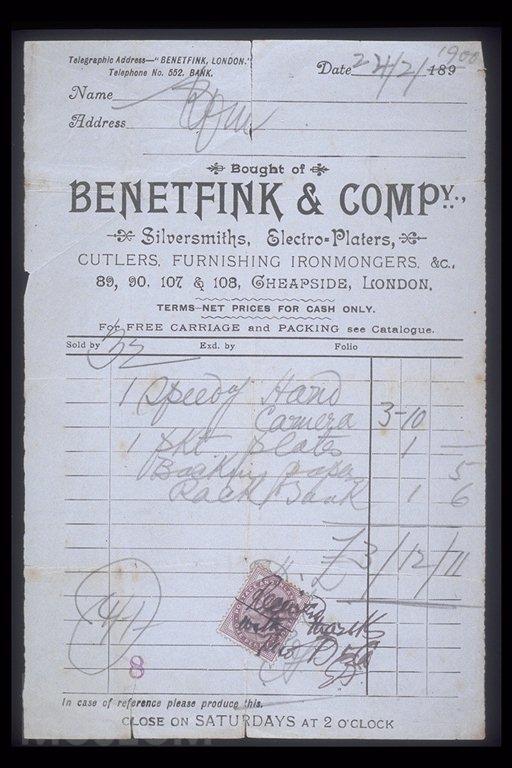 Telegraphic Address—"BENETFINK, LONDON."
Telephone No. 552. BANK.
Date 22/2/ 189 1900
Name
Address
Bought of
BENETFINK & COMPY.,
Silversmiths, Electro=Platers,
CUTLERS, FURNISHING IRONMONGERS, &c.,
89, 90, 107 & 108, CHEAPSIDE, LONDON.
TERMS—NET PRICES FOR CASH ONLY.
For FREE CARRIAGE and PACKING see Catalogue.
Sold by 32 Exd. by Folio
1 Speedy Hand
Camera 3-10
1 pkt plates 1 —
paper 5
Rack 1 6
£3/12/11
Received
with thanks
8
In case of reference please produce this.
CLOSE ON SATURDAYS AT 2 O'CLOCK